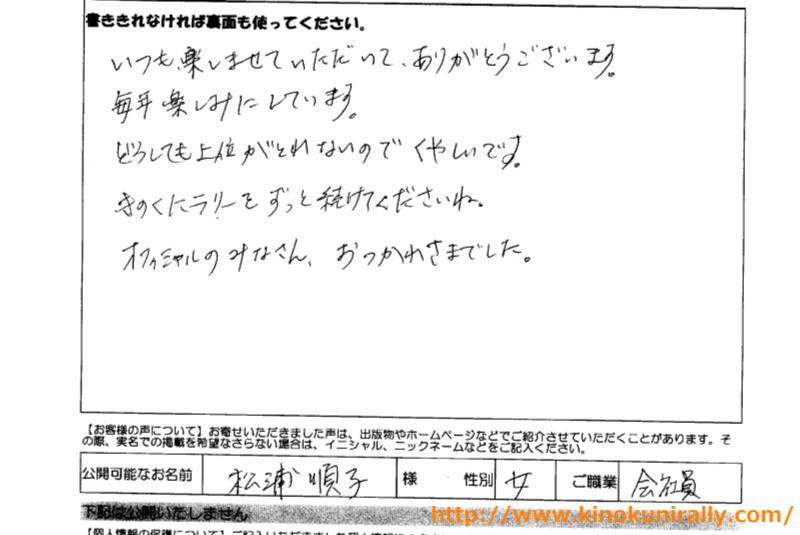 書ききれなければ裏面も使ってください。
いつも、楽しませていただいて、ありがとうございます。
毎年楽しみにしています。
どうしても上位がとれないのでくやしいです。
きのくにラリーをずっと続けてくださいね。
オフィシャルのみなさん、おつかれさまでした。
【お客様の声について】お寄せいただきました声は、出版物やホームページなどでご紹介させていただくことがあります。そ
の際、実名での掲載を希望なさらない場合は、イニシャル、ニックネームなどをご記入ください。
公開可能なお名前 松浦順子 様 性別 女 ご職業 会社員
下記は公開いたしません
http://www.kinokunirally.com/